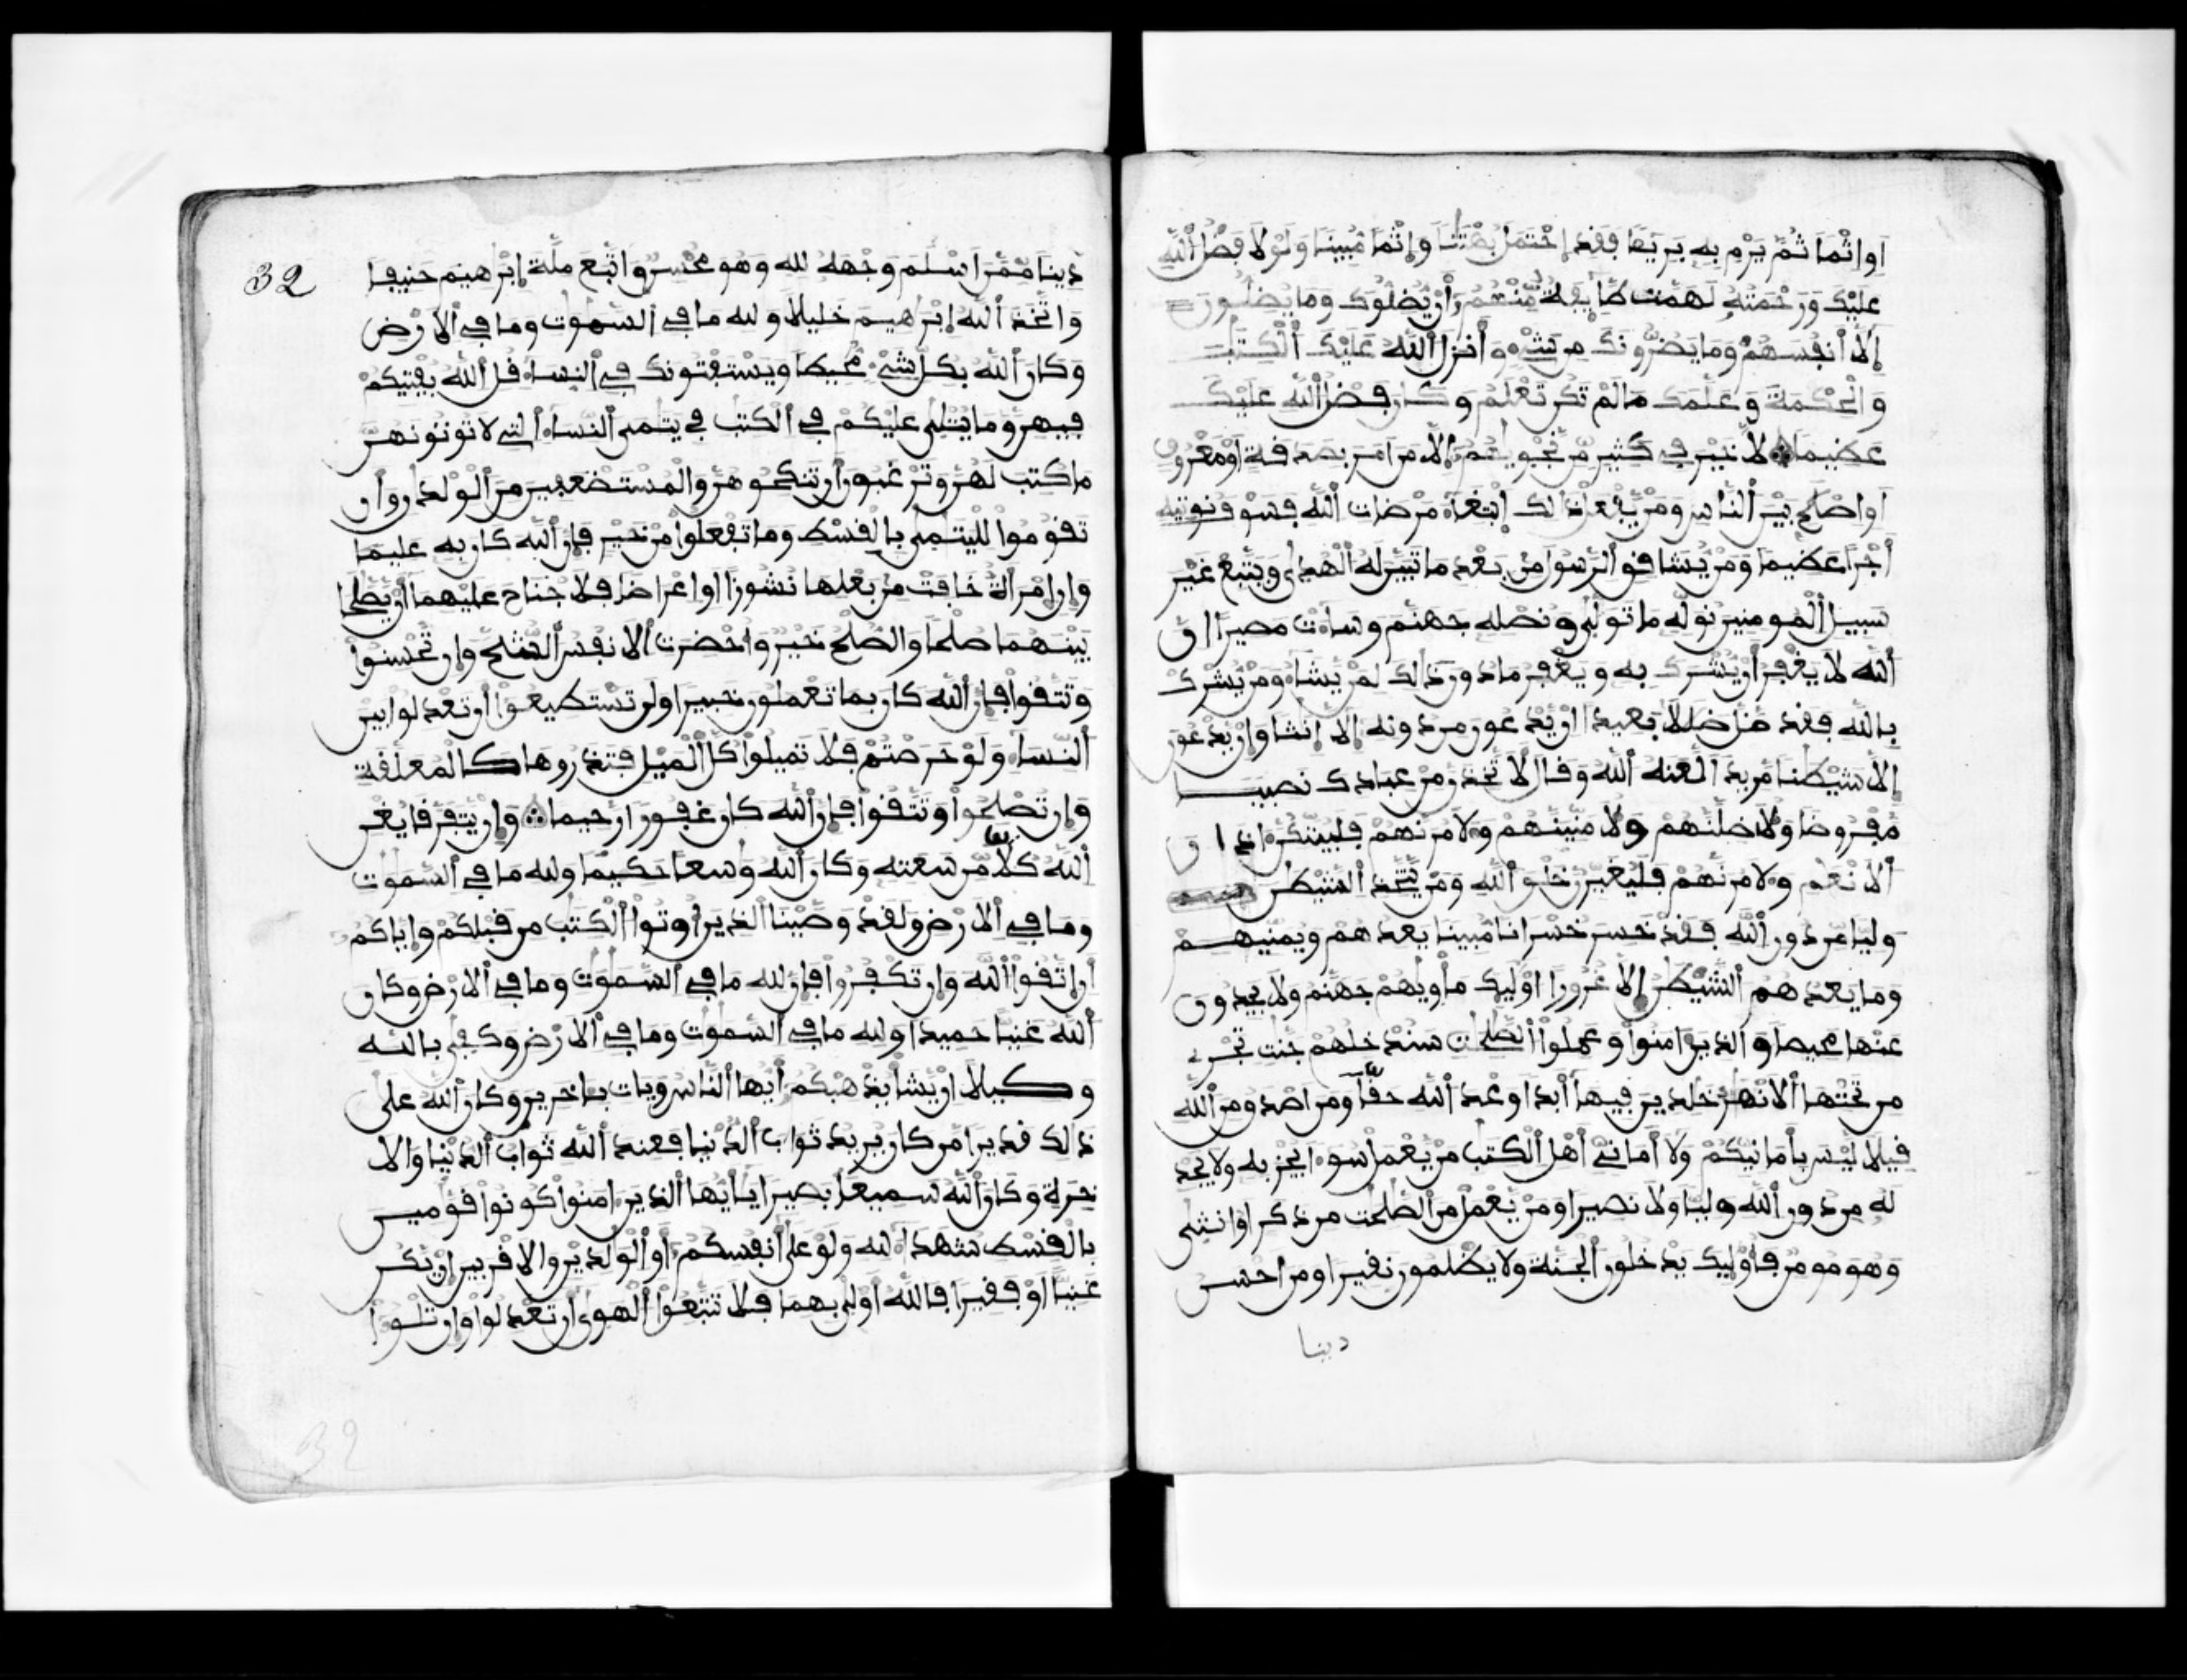 او اثما ثم يرم به بريا فقد احتمل بهتنا وإثما مبينا ولولا فضل الله
عليك ورحمته لهمت طايفة منهم أن يضلوك وما يضلون
إلا أنفسهم وما يضرونك من شىء وأنزل الله عليك الكتب
والحكمة وعلمك ما لم تكن تعلم وكان فضل الله عليك
عظيما لا خير في كثير من نجويهم إلا من امر بصدقة او معروف
او اصلح بين الناس ومن يفعل ذلك ابتغاء مرضات الله فسوف نوتيه
أجرا عظيما ومن يشاقق الرسول من بعد ما تبين له الهدى ويتبع غير
سبيل المومنين نوله ما تولى ونصله جهنم وساءت مصيرا ان
الله لا يغفر أن يشرك به ويغفر ما دون ذالك لمن يشاء ومن يشرك
بالله فقد ضل ضللا بعيدا ان يدعون من دونه إلا إنثا وان يدعون
إلا شيطنا مريدا لعنه الله وقال لا تخذن من عبادك نصيبا
مفروضا ولأضلنهم ولا منينهم ولا مرنهم فليبتكن اذان
ألا نعم ولا مرنهم فليغيرن خلق الله ومن يتخذ الشيطن
وليا من دون الله فقد خسر خسرانا مبينا يعدهم ويمنيهم
وما يعدهم الشيطن إلا غرورا اوليك ماويهم جهنم ولا يجدون
عنها محيصا والذين امنوا وعملوا الصلحت سندخلهم جنت تجرى
من تحتها ألانهر خلدين فيها أبدا وعد الله حقا ومن اصدق من الله
قيلا ليس بأمانيكم ولا أمانى أهل الكتب من يعمل سوءا يجز به ولا يجد
له من دون الله وليا ولا نصيرا ومن يعمل من الصلحت من ذكر او انثى
وهو مومن فأوليك يدخلون الجنة ولا يظلمون نقيرا ومن احسن
دينا
32
دينا ممن اسلم وجهه لله وهو محسن واتبع ملة إبرهيم حنيفا
واتخذ الله إبرهيم خليلا ولله ما في السموت وما في ألارض
وكان الله بكل شىء محيطا ويستفتونك في النساء قل الله يفتيكم
فيهن وما يتلى عليكم في الكتب في يتمى النساء التى لا توتونهن
ما كتب لهن وترغبون أن تنكحوهن والمستضعفين من الولدان وأن
تقوموا لليتمى بالقسط وما تفعلوا من خير فإن الله كان به عليما
وإن إمرأة خافت من بعلها نشوزا او اعراضا فلا جناح عليهما أن يصلحا
بينهما صلحا والصلح خير وأحضرت ألا نفس الشح وإن تحسنوا
وتتقوا فإن الله كان بما تعملون خبيرا ولن تستطيعوا أن تعدلوا بين
النساء ولو حرصتم فلا تميلوا كل الميل فتذروها كالمعلقة
وإن تصلحوا وتتقوا فإن الله كان غفورا رحيما وإن يتفرقا يغن
الله كلا من سعته وكان الله وسعا حكيما ولله ما في السموت
وما في ألا رض ولقد وصينا الذين أوتوا الكتب من قبلكم وإياكم
أن إتقوا الله وإن تكفروا فإن لله ما في السموت وما في ألا رض وكان
الله غنيا حميدا ولله ما في السموت وما في ألا رض وكفى بالله
وكيلا ان يشأ يذهبكم أيها الناس ويات بـاخرين وكان الله على
ذالك قديرا من كان يريد ثواب الدنيا فعند الله ثواب الدنيا والا
خرة وكان الله سميعا بصيرا يـأيها الذين امنوا كونوا قومين
بالقسط شهداء لله ولو على أنفسكم أو الولدين والا قربين ان يكن
غنيا او فقيرا فالله أولى بهما فلا تتبعوا الهوى أن تعدلوا وإن تلوا
32